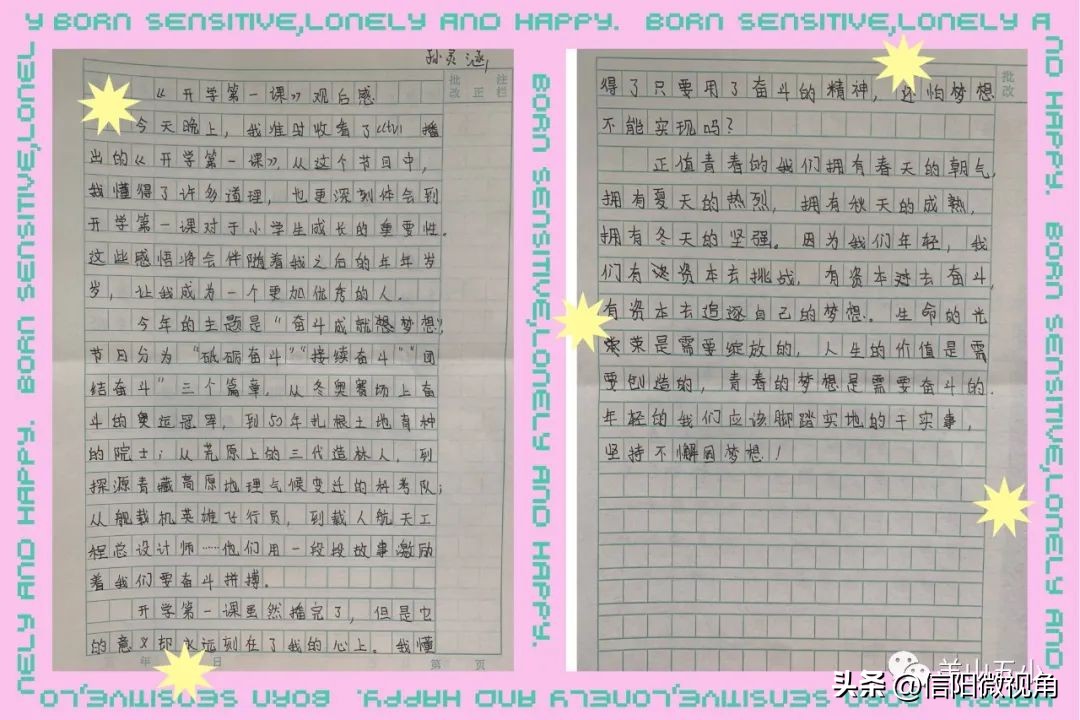 Y BORN SENSITIVE,LONELY AND HAPPY. BORN SENSITIVE,LONELY A
ND HAPPY. BORN SENSITIVE,LONELY AND
HAPPY. BORN SENSITIVE,LONELY AND HAPPY. BORN SENSITIVE,LO
NELY AND HAPPY. BORN SENSITIVE,LONEL
BORN SENSITIVE,LONELY AND HAPPY.
孙灵涵
批改 注正栏
《开学第一课》观后感
今天晚上，我准时收看了cctv1播
出的《开学第一课》，从这个节目中，
我懂得了许多道理，也更深刻体会到
开学第一课对于小学生成长的重要性。
这些感悟将会伴随着我之后的年年岁
岁，让我成为一个更加优秀的人。
今年的主题是“奋斗成就梦想”，
节目分为“砥砺奋斗”“接续奋斗”“团
结奋斗”三个篇章，从冬奥赛场上奋
斗的奥运冠军，到50年扎根土地育种
的院士；从荒原上的三代造林人，到
探源青藏高原地理气候变迁的科考队；
从舰载机英雄飞行员，到载人航天工
程总设计师……他们用一段段故事激励
着我们要奋斗拼搏。
开学第一课虽然播完了，但是它
的意义却永远刻在了我的心上。我懂
年 日 第 页
批改
得了只要用了奋斗的精神，还怕梦想
不能实现吗？
正值青春的我们拥有春天的朝气，
拥有夏天的热烈，拥有秋天的成熟，
拥有冬天的坚强。因为我们年轻，我
们有资本去挑战，有资本去奋斗，
有资本去追逐自己的梦想。生命的光
荣是需要绽放的，人生的价值是需
要创造的，青春的梦想是需要奋斗的。
年轻的我们应该脚踏实地的干实事，
坚持不懈圆梦想！
羊山五小
头条 @信阳微视角